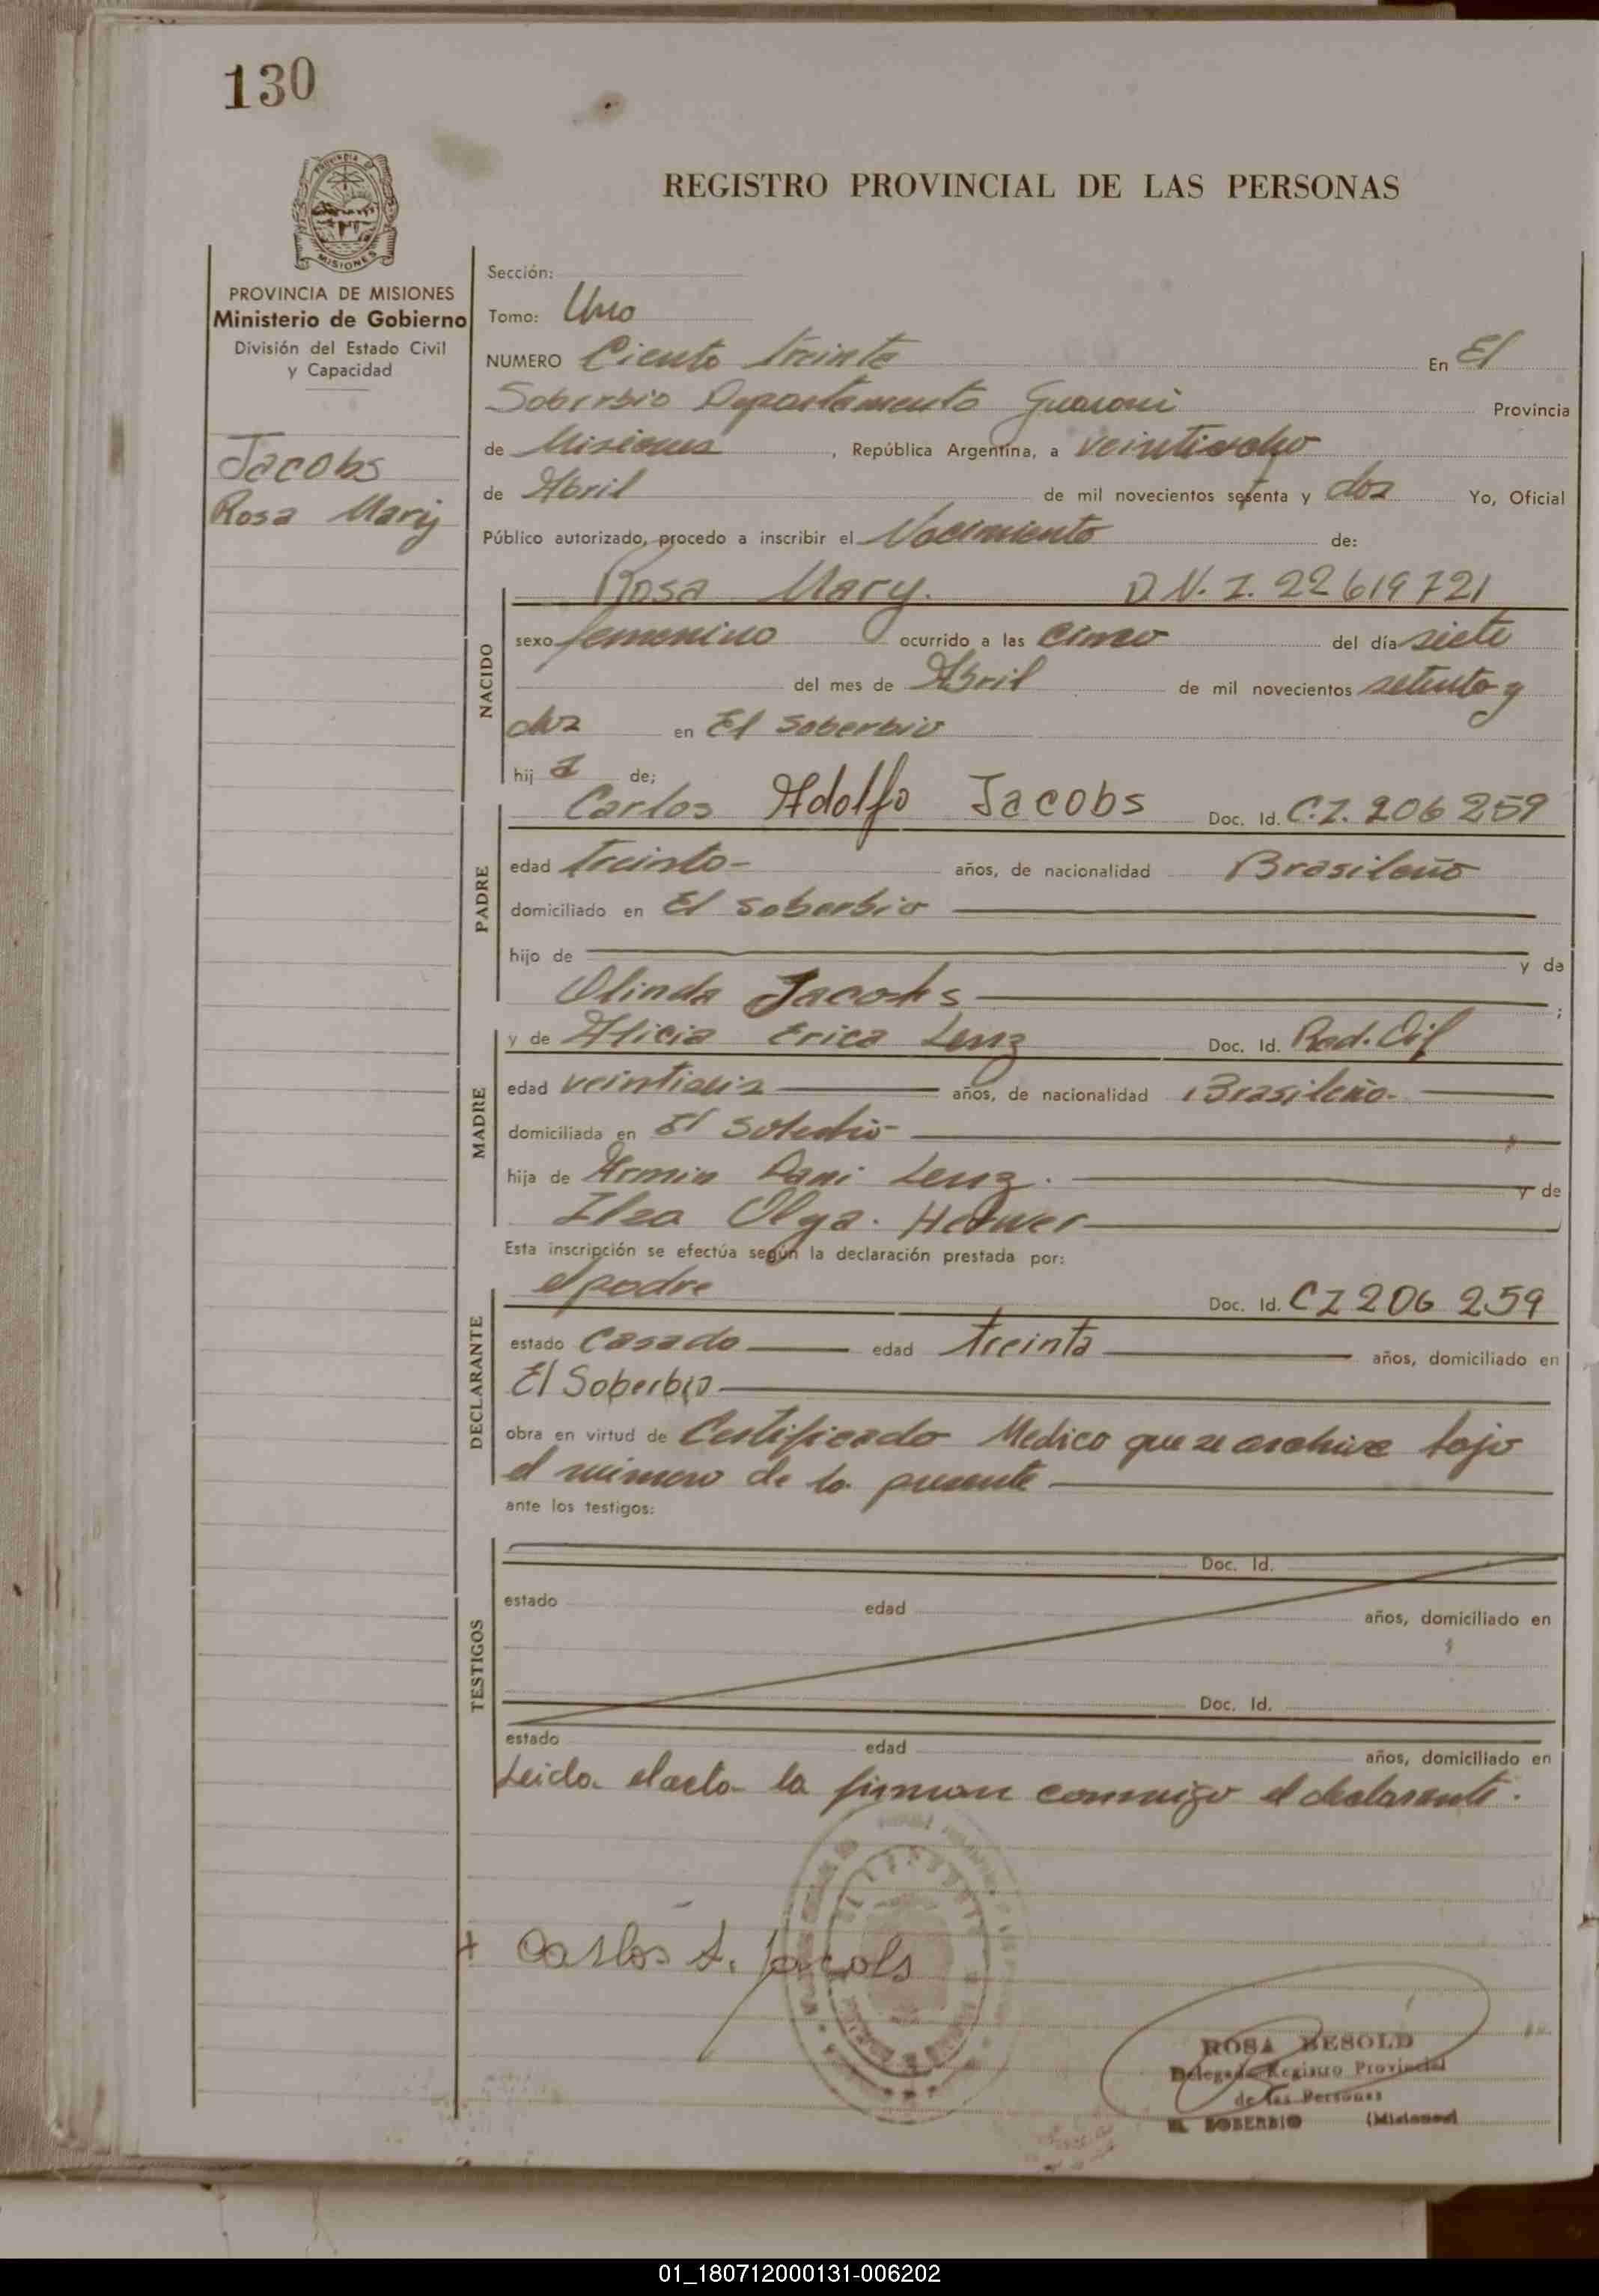 130
PROVINCIA DE
MISIONES
REGISTRO PROVINCIAL DE LAS PERSONAS
PROVINCIA DE MISIONES
Ministerio de Gobierno
División del Estado Civil
y Capacidad
Jacobs
Rosa Mary
Sección:
Tomo: Uno
NUMERO Ciento treinta En El
Soberbio Departamento Guarani Provincia
de Misiones, República Argentina, a veintiocho
de Abril de mil novecientos setenta y dos Yo, Oficial
Público autorizado, procedo a inscribir el Nacimiento de:
NACIDO
Rosa Mary. D.N.I. 22 619 721
sexo femenino ocurrido a las cinco del día siete
del mes de Abril de mil novecientos setenta y
dos en El Soberbio
hij a de;
PADRE
Carlos Adolfo Jacobs Doc. Id. C.I. 206 259
edad treinta - años, de nacionalidad Brasileño
domiciliado en El Soberbio
hijo de y de
Olinda Jacobs ;
MADRE
y de Alicia Erica Lenz Doc. Id. Rad. Oif
edad veintiseis años, de nacionalidad Brasileño.
domiciliada en El Soberbio
hija de Armin Dani Lenz. y de
Ilza Olga.
Esta inscripción se efectúa según la declaración prestada por:
DECLARANTE
el padre Doc. Id. CI 206 259
estado Casado edad treinta años, domiciliado en
El Soberbio
obra en virtud de Certificado Medico que se archiva bajo
el numero de la presente
ante los testigos:
TESTIGOS
Doc. Id.
estado edad años, domiciliado en
Doc. Id.
estado edad años, domiciliado en
Leida el acta la firman conmigo el declarante.
+ Carlos A. Jacobs
ROSA BESOLD
Delegada Registro Provincial
de las Personas
EL SOBERBIO (Misiones)
01_180712000131-006202